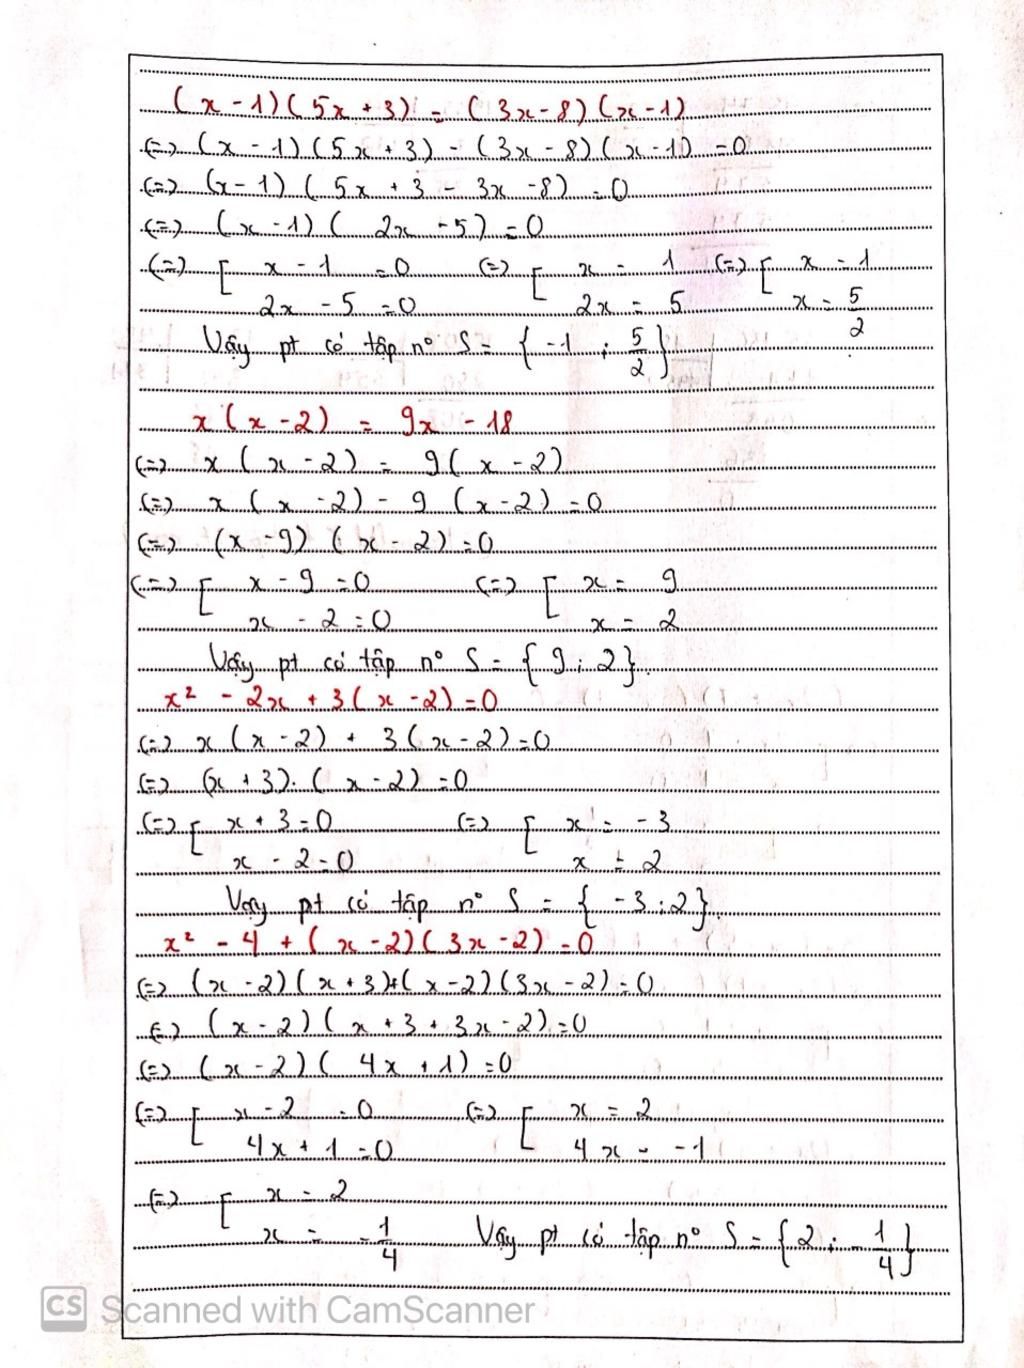 (x - 1)(5x + 3) = (3x - 8)(x - 1)
(=) (x - 1)(5x + 3) - (3x - 8)(x - 1) = 0
(=) (x - 1)(5x + 3 - 3x - 8) = 0
(=) (x - 1)(2x - 5) = 0
(=) [ x - 1 = 0 (=) [ x = 1 (=) [ x = 1
2x - 5 = 0 2x = 5 x = 5/2
Vậy pt có tập nº S = { -1 ; 5/2 }
x(x - 2) = 9x - 18
(=) x(x - 2) = 9(x - 2)
(=) x(x - 2) - 9(x - 2) = 0
(=) (x - 9)(x - 2) = 0
(=) [ x - 9 = 0 (=) [ x = 9
x - 2 = 0 x = 2
Vậy pt có tập nº S = { 9 ; 2 }.
x² - 2x + 3(x - 2) = 0
(=) x(x - 2) + 3(x - 2) = 0
(=) (x + 3).(x - 2) = 0
(=) [ x + 3 = 0 (=) [ x = -3
x - 2 = 0 x = 2
Vậy pt có tập nº S = { -3 ; 2 }.
x² - 4 + (x - 2)(3x - 2) = 0
(=) (x - 2)(x + 3)+(x - 2)(3x - 2) = 0
(=) (x - 2)(x + 3 + 3x - 2) = 0
(=) (x - 2)(4x + 1) = 0
(=) [ x - 2 = 0 (=) [ x = 2
4x + 1 = 0 4x = -1
(=) [ x = 2
x = -1/4 Vậy pt có tập nº S = { 2 ; -1/4 }
CS Scanned with CamScanner